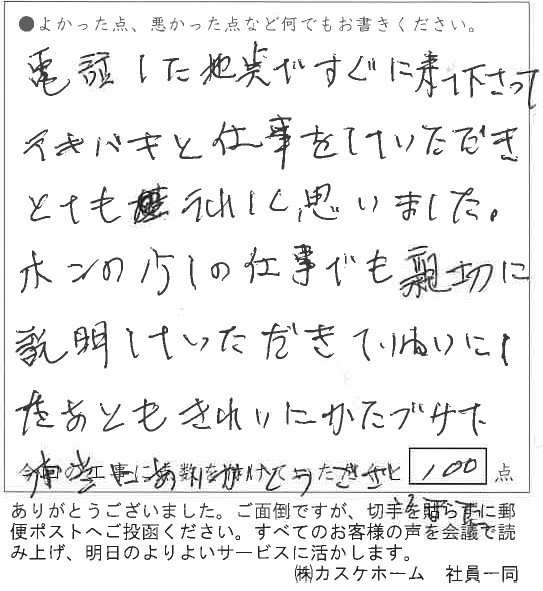 ●よかった点、悪かった点など何でもお書きください。
電話した地点ですぐに来て下さって
テキパキと仕事をしていただき
とても うれしく思いました。
ホンの少しの仕事でも親切に
説明していただきていねいにし
たあともきれいにかたづけて
本当にありがとうござ
今回の工事に点数を付けていただきますと 100 点
ありがとうございました。ご面倒ですが、切手を貼らずに郵
便ポストへご投函ください。すべてのお客様の声を会議で読
み上げ、明日のよりよいサービスに活かします。
㈱カスケホーム 社員一同